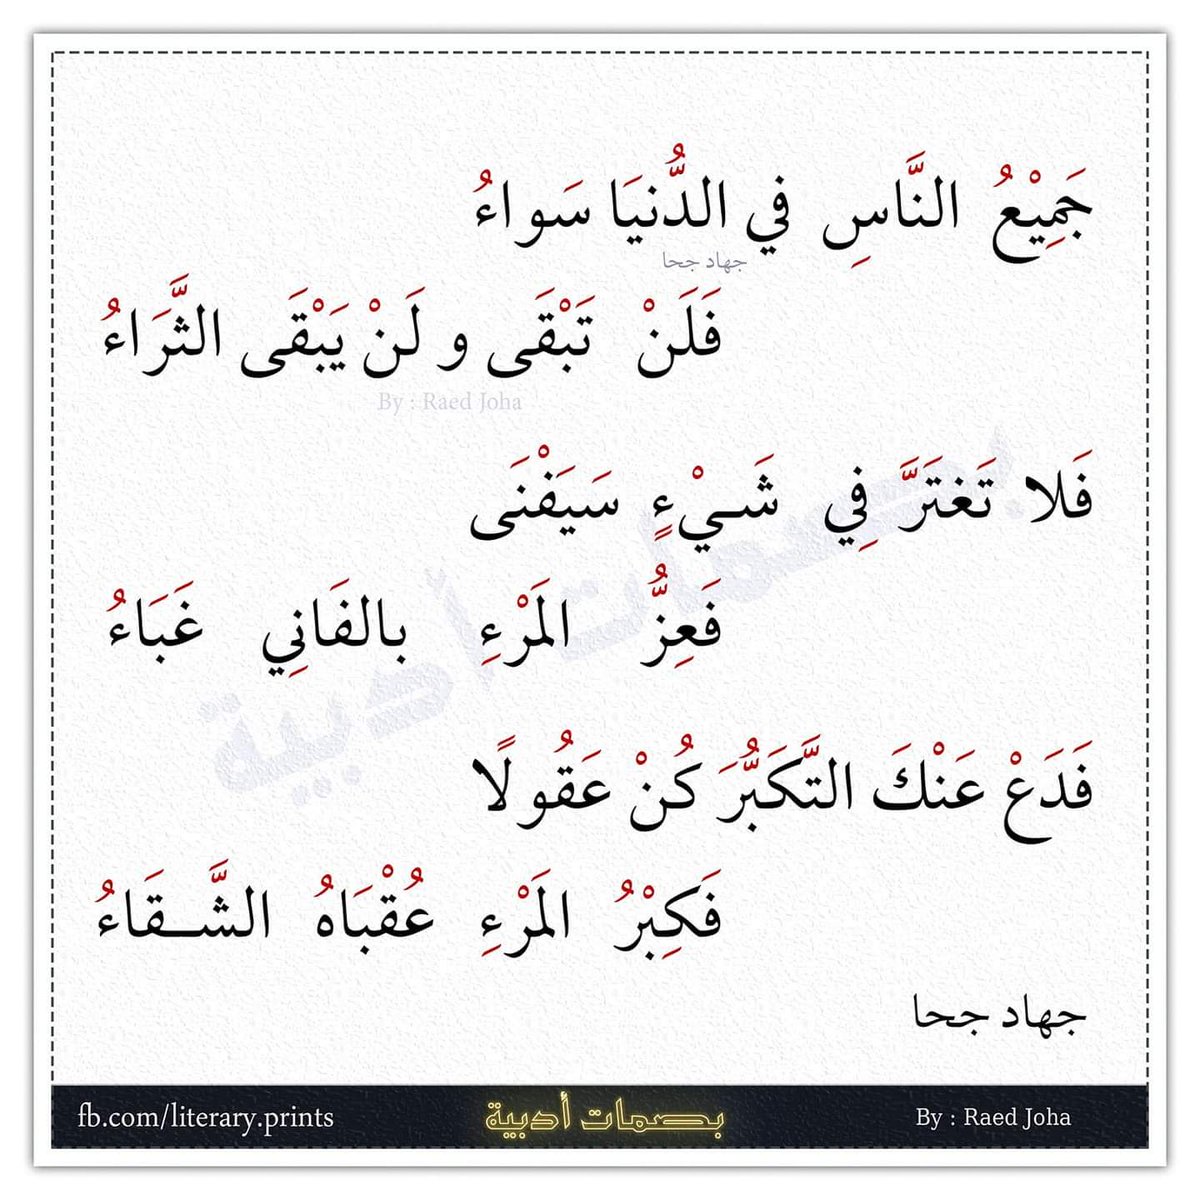 جَمِيْعُ النَّاسِ في الدُّنيَا سَواءُ
جهاد جحا
فَلَنْ تَبْقَى و لَنْ يَبْقَى الثَّرَاءُ
By : Raed Joha
فَلا تَغتَرَّ فِي شَـيْءٍ سَيَفْنَى
فَعِزُّ المَرْءِ بالفَانِي غَبَاءُ
بصمات أدبية
فَدَعْ عَنْكَ التَّكَبُّرَ كُنْ عَقُولًا
فَكِبْرُ المَرْءِ عُقْبَاهُ الشَّـقَاءُ
جهاد جحا
fb.com/literary.prints بصمات أدبية By : Raed Joha